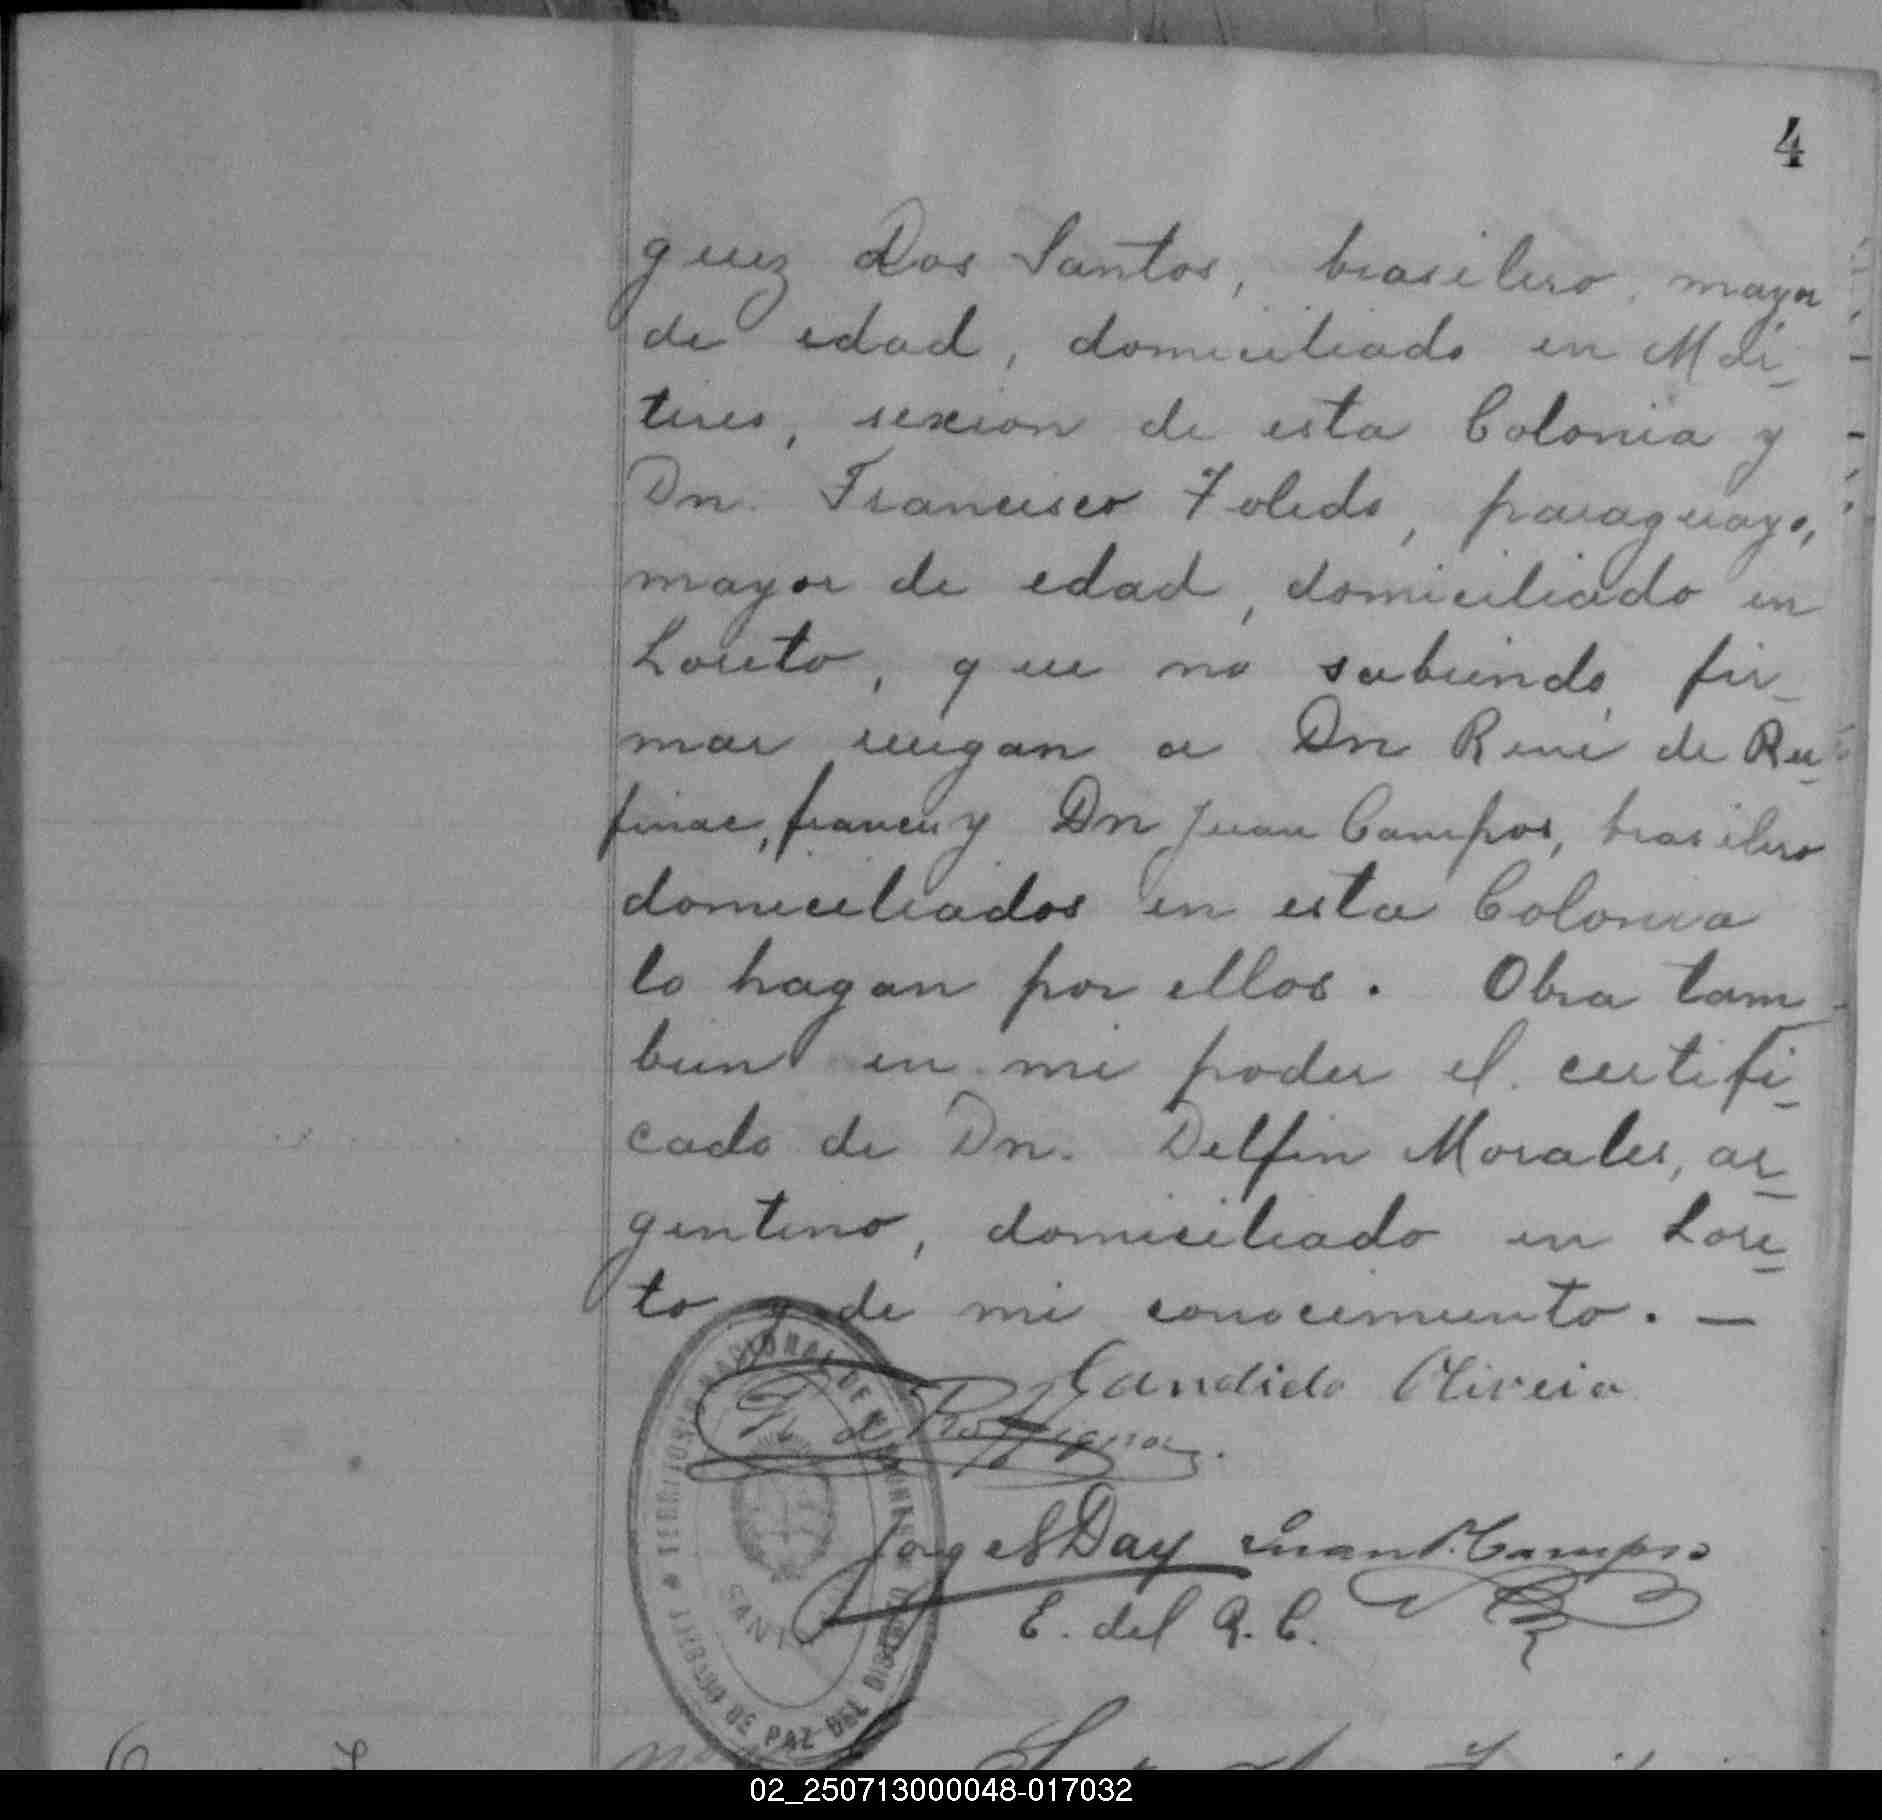 4
guez Dos Santos, brasilero, mayor
de edad, domiciliado en Mar-
tires, sexion de esta Colonia y
Dn. Francisco Toledo, paraguayo,
mayor de edad, domiciliado en
Loreto, que no sabiendo fir-
mar ruegan a Dn René de Ru-
finac, frances y Dn Juan Campos, brasilero
domiciliados en esta Colonia
lo hagan por ellos. Obra tam-
bien en mi poder el certifi-
cado de Dn. Delfin Morales, ar-
gentino, domiciliado en Lore-
to y de mi conocimiento. —
Candido Oliveira
R. de
Jorge S Day Juan P. Campos
E. del R. C.
TERRITORIO NACIONAL DE MISIONES
SANTA
JUZGADO DE PAZ DEL
02_250713000048-017032